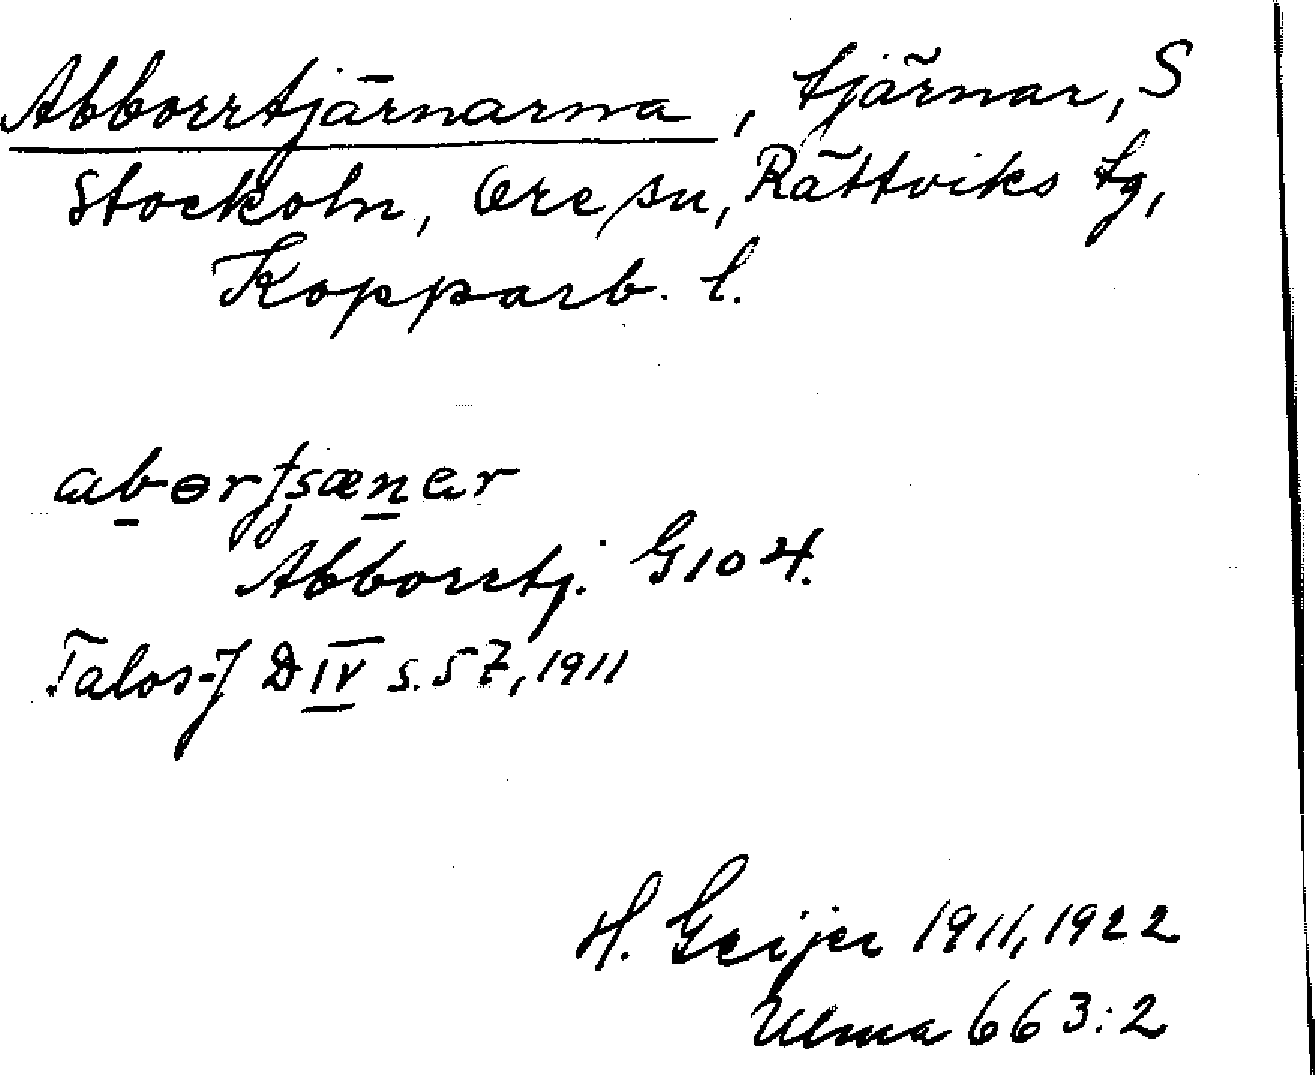 Abborrtjärnarna, tjärnar, S
Stockoln, Ore sn, Rättviks tg,
Kopparb. l.
Abborrtj. G104.
D IV s. 57, 1911
H. Geijer 1911, 1922
Ulma 663:2